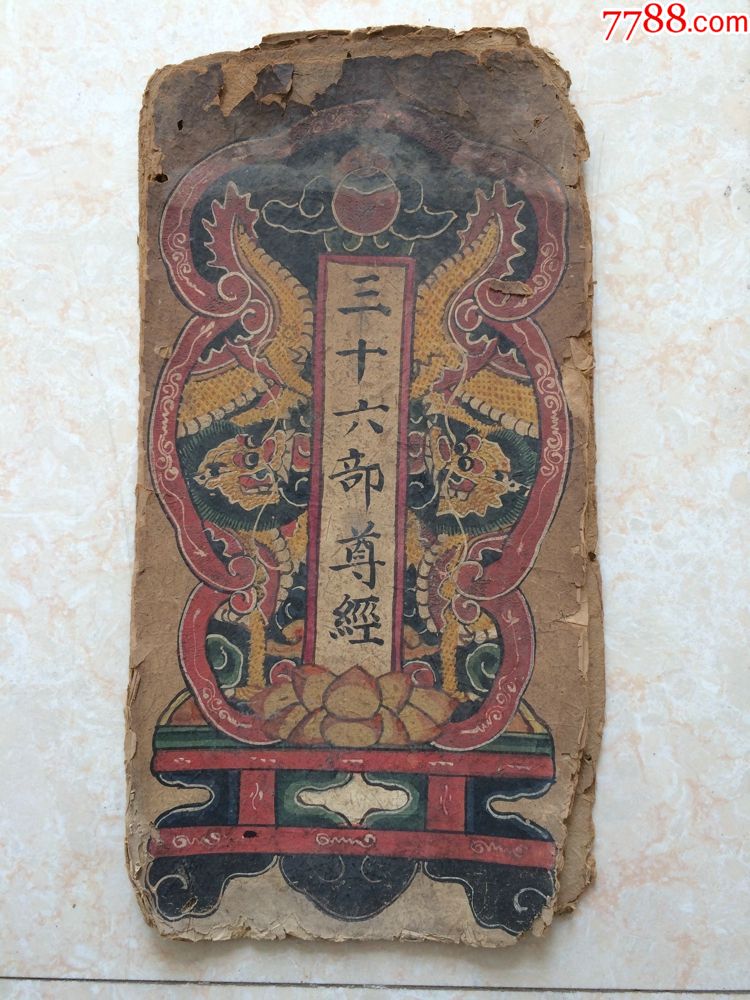 7788.com
三十六部尊經